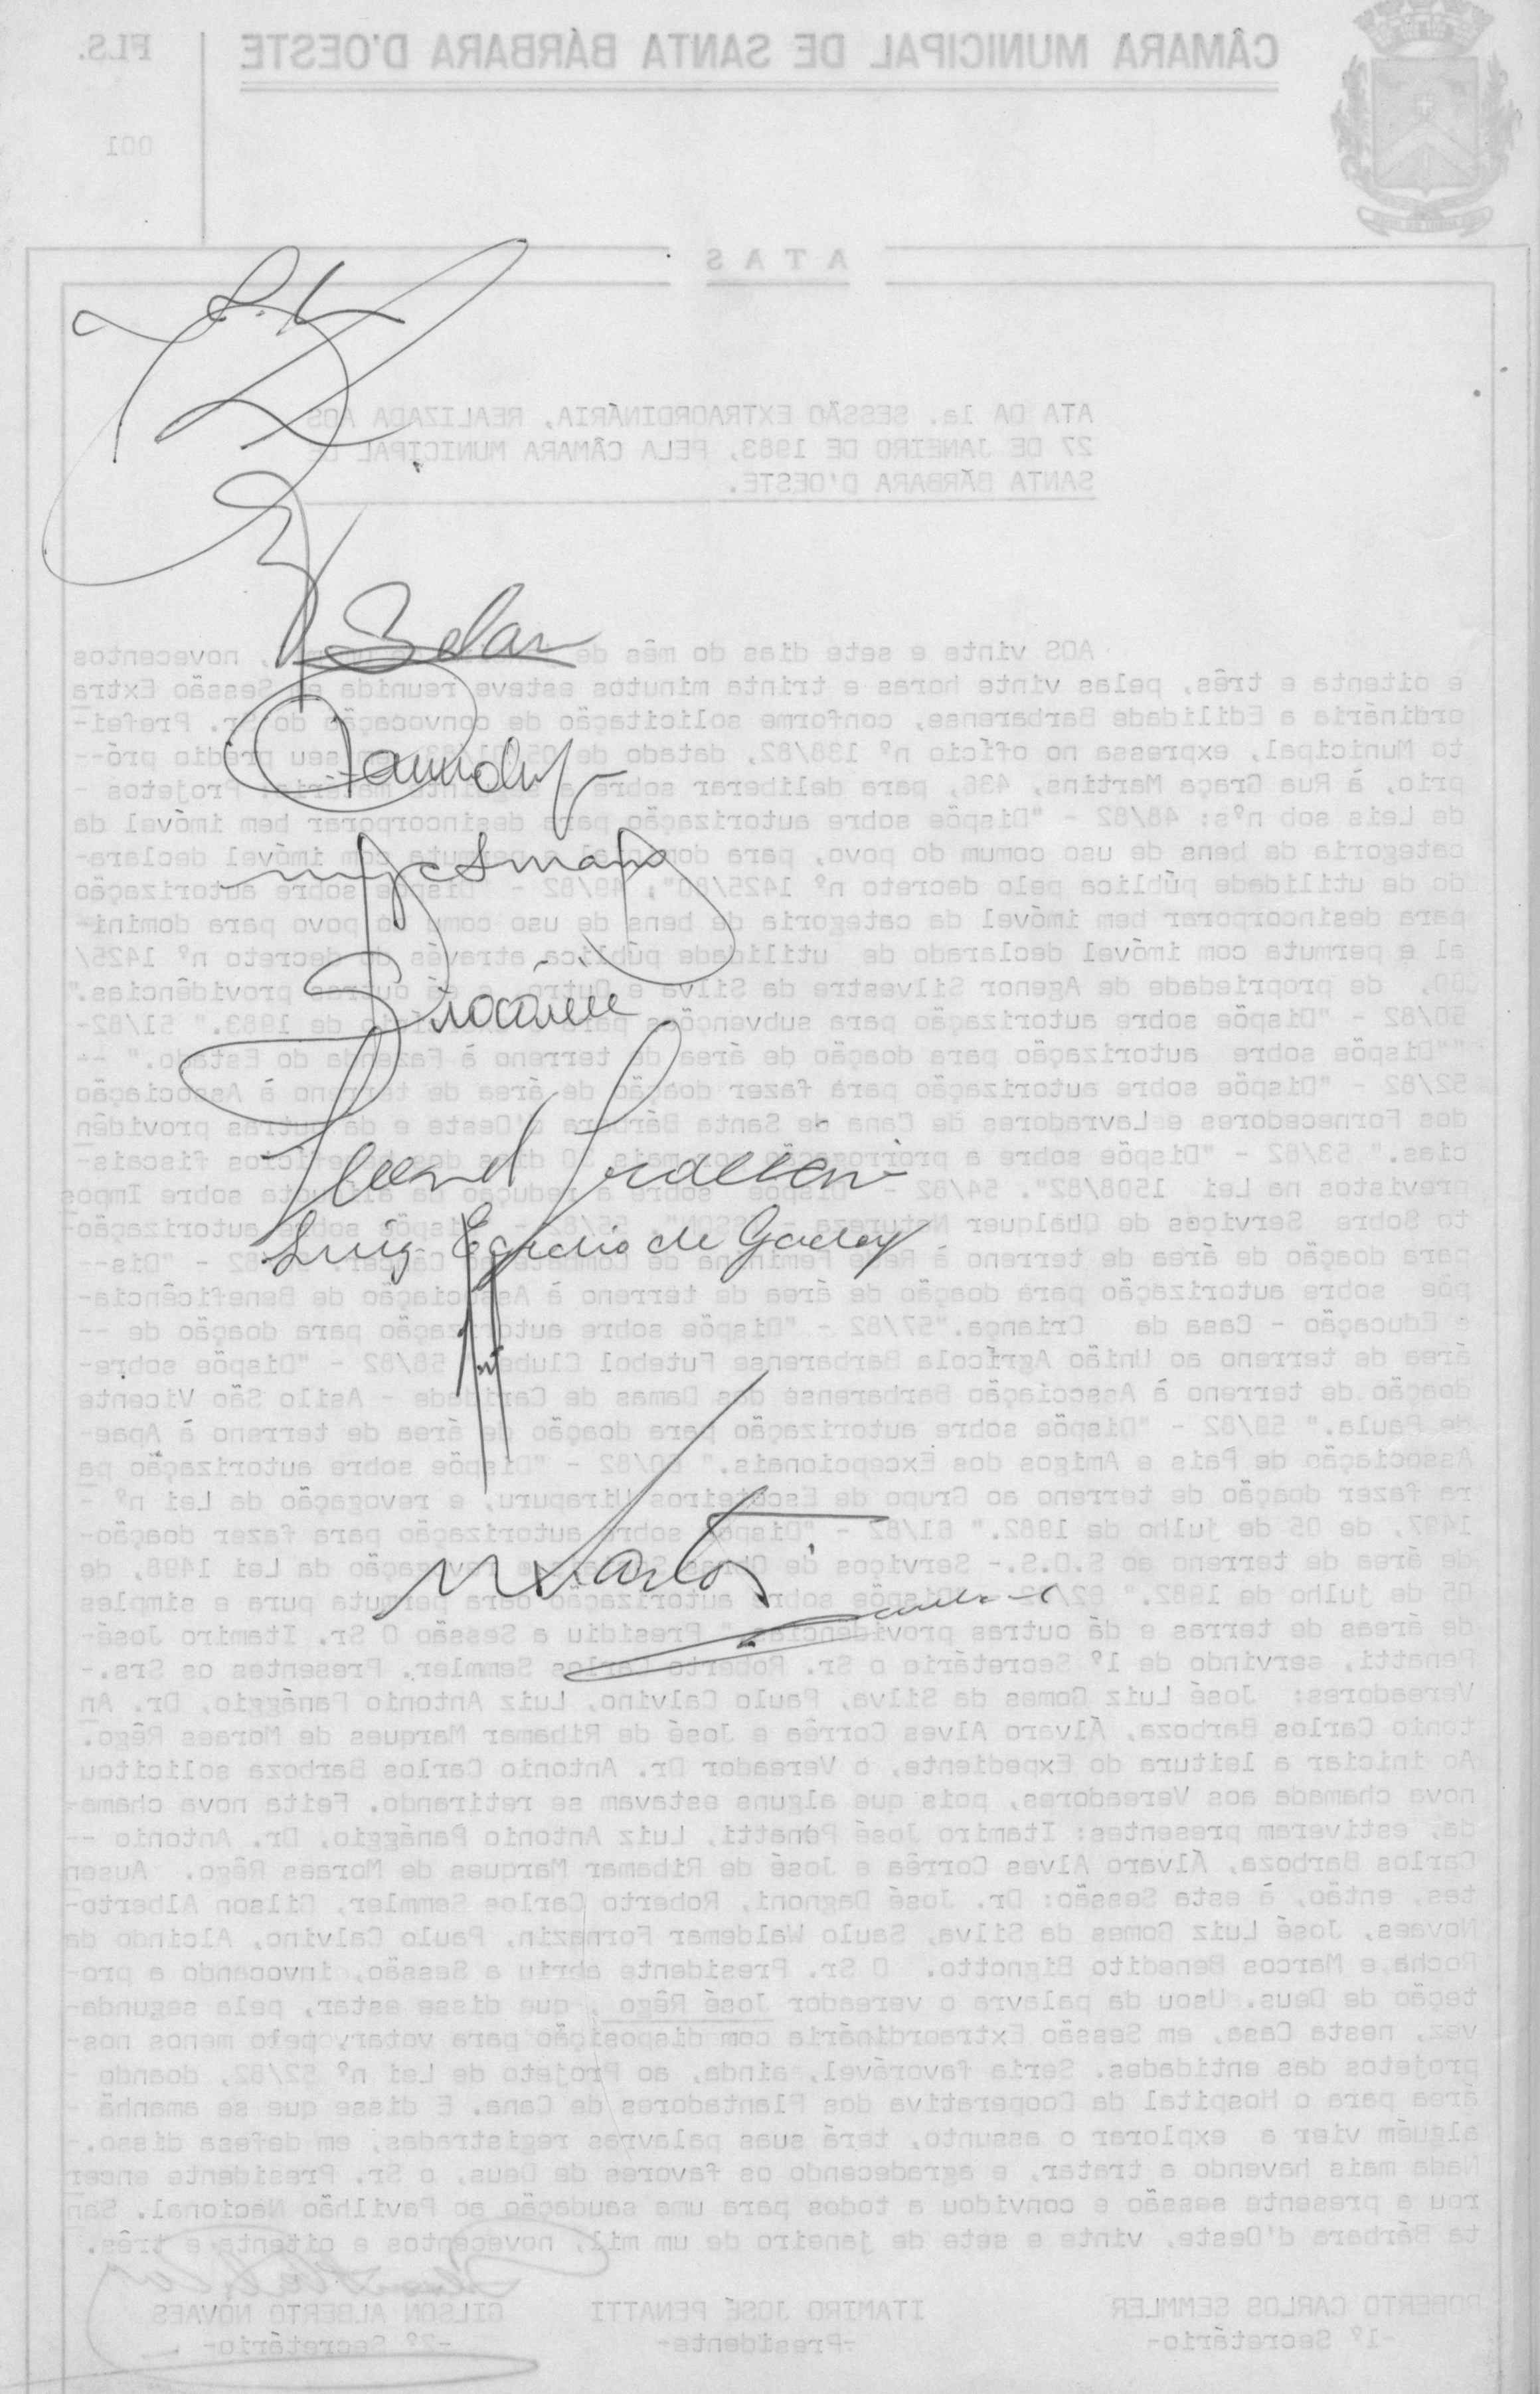 CÂMARA MUNICIPAL DE SANTA BÁRBARA D'OESTE
FLS.
001
ATAS
ATA DA 1a. SESSÃO EXTRAORDINÁRIA, REALIZADA AOS
27 DE JANEIRO DE 1983, PELA CÂMARA MUNICIPAL DE
SANTA BÁRBARA D'OESTE.
AOS vinte e sete dias do mês de novecentos
e oitenta e três, pelas vinte horas e trinta minutos esteve reunida em Sessão Extra
ordinária a Edilidade Barbarense, conforme solicitação de convocação do Sr. Prefei-
to Municipal, expressa no ofício nº 138/82, datado de seu prédio pró--
prio, á Rua Graça Martins, 436, para deliberar sobre a Projetos -
de Leis sob nºs: 48/82 - "Dispõe sobre autorização para desincorporar bem imóvel da
categoria de bens de uso comum do povo, para imóvel declara-
do de utilidade pública pelo decreto nº 1425/80"; 49/82 - "Dispõe sobre autorização
para desincorporar bem imóvel da categoria de bens de uso comum do povo para domini-
al e permuta com imóvel declarado de utilidade pública através do decreto nº 1425/
80, de propriedade de Agenor Silvestre da Silva e Outro, e dá outras providências."
50/82 - "Dispõe sobre autorização para subvenções de 1983." 51/82-
""Dispõe sobre autorização para doação de área de terreno á Fazenda do Estado." --
52/82 "Dispõe sobre autorização para fazer doação de área de terreno á Associação
dos Fornecedores e Lavradores de Cana de Santa Bárbara d'Oeste e dá outras providên
cias." 53/82 - "Dispõe sobre a prorrogação fiscais-
previstos na Lei 1508/82". 54/82 - "Dispõe sobre a redução da alíquota sobre Impos
to Sobre Serviços de Qualquer Natureza - ISSQN". sobre autorização-
para doação de área de terreno á Rede Feminina de Combate ao Câncer." - "Dis--
põe sobre autorização para doação de área de terreno á Associação de Beneficência-
e Educação - Casa da Criança."57/82 - "Dispõe sobre autorização para doação de --
área de terreno ao União Agrícola Barbarense Futebol Clube 58/82 - "Dispõe sobre-
doação de terreno á Associação Barbarense das Damas de Caridade - Asilo São Vicente
de Paula." 59/82 - "Dispõe sobre autorização para doação de área de terreno á Apae-
Associação de Pais e Amigos dos Excepcionais." 60/82 - "Dispõe sobre autorização pa
ra fazer doação de terreno ao Grupo de Escoteiros Uirapuru, e revogação da Lei nº -
1497, de 05 de julho de 1982." 61/82 - "Dispõe sobre autorização para fazer doação-
de área de terreno ao S.O.S.- Serviços de Obras revogação da Lei 1498, de
05 de julho de 1982." 62/82 Dispõe sobre autorização para permuta pura e simples
de áreas de terras e dá outras providências." Presidiu a Sessão O Sr. Itamiro José-
Penatti, servindo de 1º Secretário o Sr. Roberto Carlos Semmler. Presentes os Srs.-
Vereadores: José Luiz Gomes da Silva, Paulo Calvino, Luiz Antonio Panággio, Dr. An
tonio Carlos Barboza, Álvaro Alves Corrêa e José de Ribamar Marques de Moraes Rêgo.
Ao iniciar a leitura do Expediente, o Vereador Dr. Antonio Carlos Barboza solicitou
nova chamada aos Vereadores, pois que alguns estavam se retirando. Feita nova chama-
da, estiveram presentes: Itamiro José Penatti, Luiz Antonio Panággio, Dr. Antonio --
Carlos Barboza, Álvaro Alves Corrêa e José de Ribamar Marques de Moraes Rêgo. Ausen
tes, então, á esta Sessão: Dr. José Dagnoni, Roberto Carlos Semmler, Gilson Alberto-
Novaes, José Luiz Gomes da Silva, Saulo Waldemar Fornazin, Paulo Calvino, Alcindo da
Rocha e Marcos Benedito Bignotto. O Sr. Presidente abriu a Sessão, invocando a pro-
teção de Deus. Usou da palavra o vereador José Rêgo, que disse estar, pela segunda-
vez, nesta Casa, em Sessão Extraordinária com disposição para votar, pelo menos nos-
projetos das entidades. Seria favorável, ainda, ao Projeto de Lei nº 52/82, doando -
área para o Hospital da Cooperativa dos Plantadores de Cana. E disse que se amanhã -
alguém vier a explorar o assunto, terá suas palavras registradas, em defesa disso.-
Nada mais havendo a tratar, e agradecendo os favores de Deus, o Sr. Presidente encer
rou a presente sessão e convidou a todos para uma saudação ao Pavilhão Nacional. San
ta Bárbara d'Oeste, vinte e sete de janeiro de um mil, novecentos e oitenta e três.
ROBERTO CARLOS SEMMLER ITAMIRO JOSÉ PENATTI GILSON ALBERTO NOVAES
-1º Secretário- -Presidente- -2º Secretário-
Luiz Egidio de Godoy